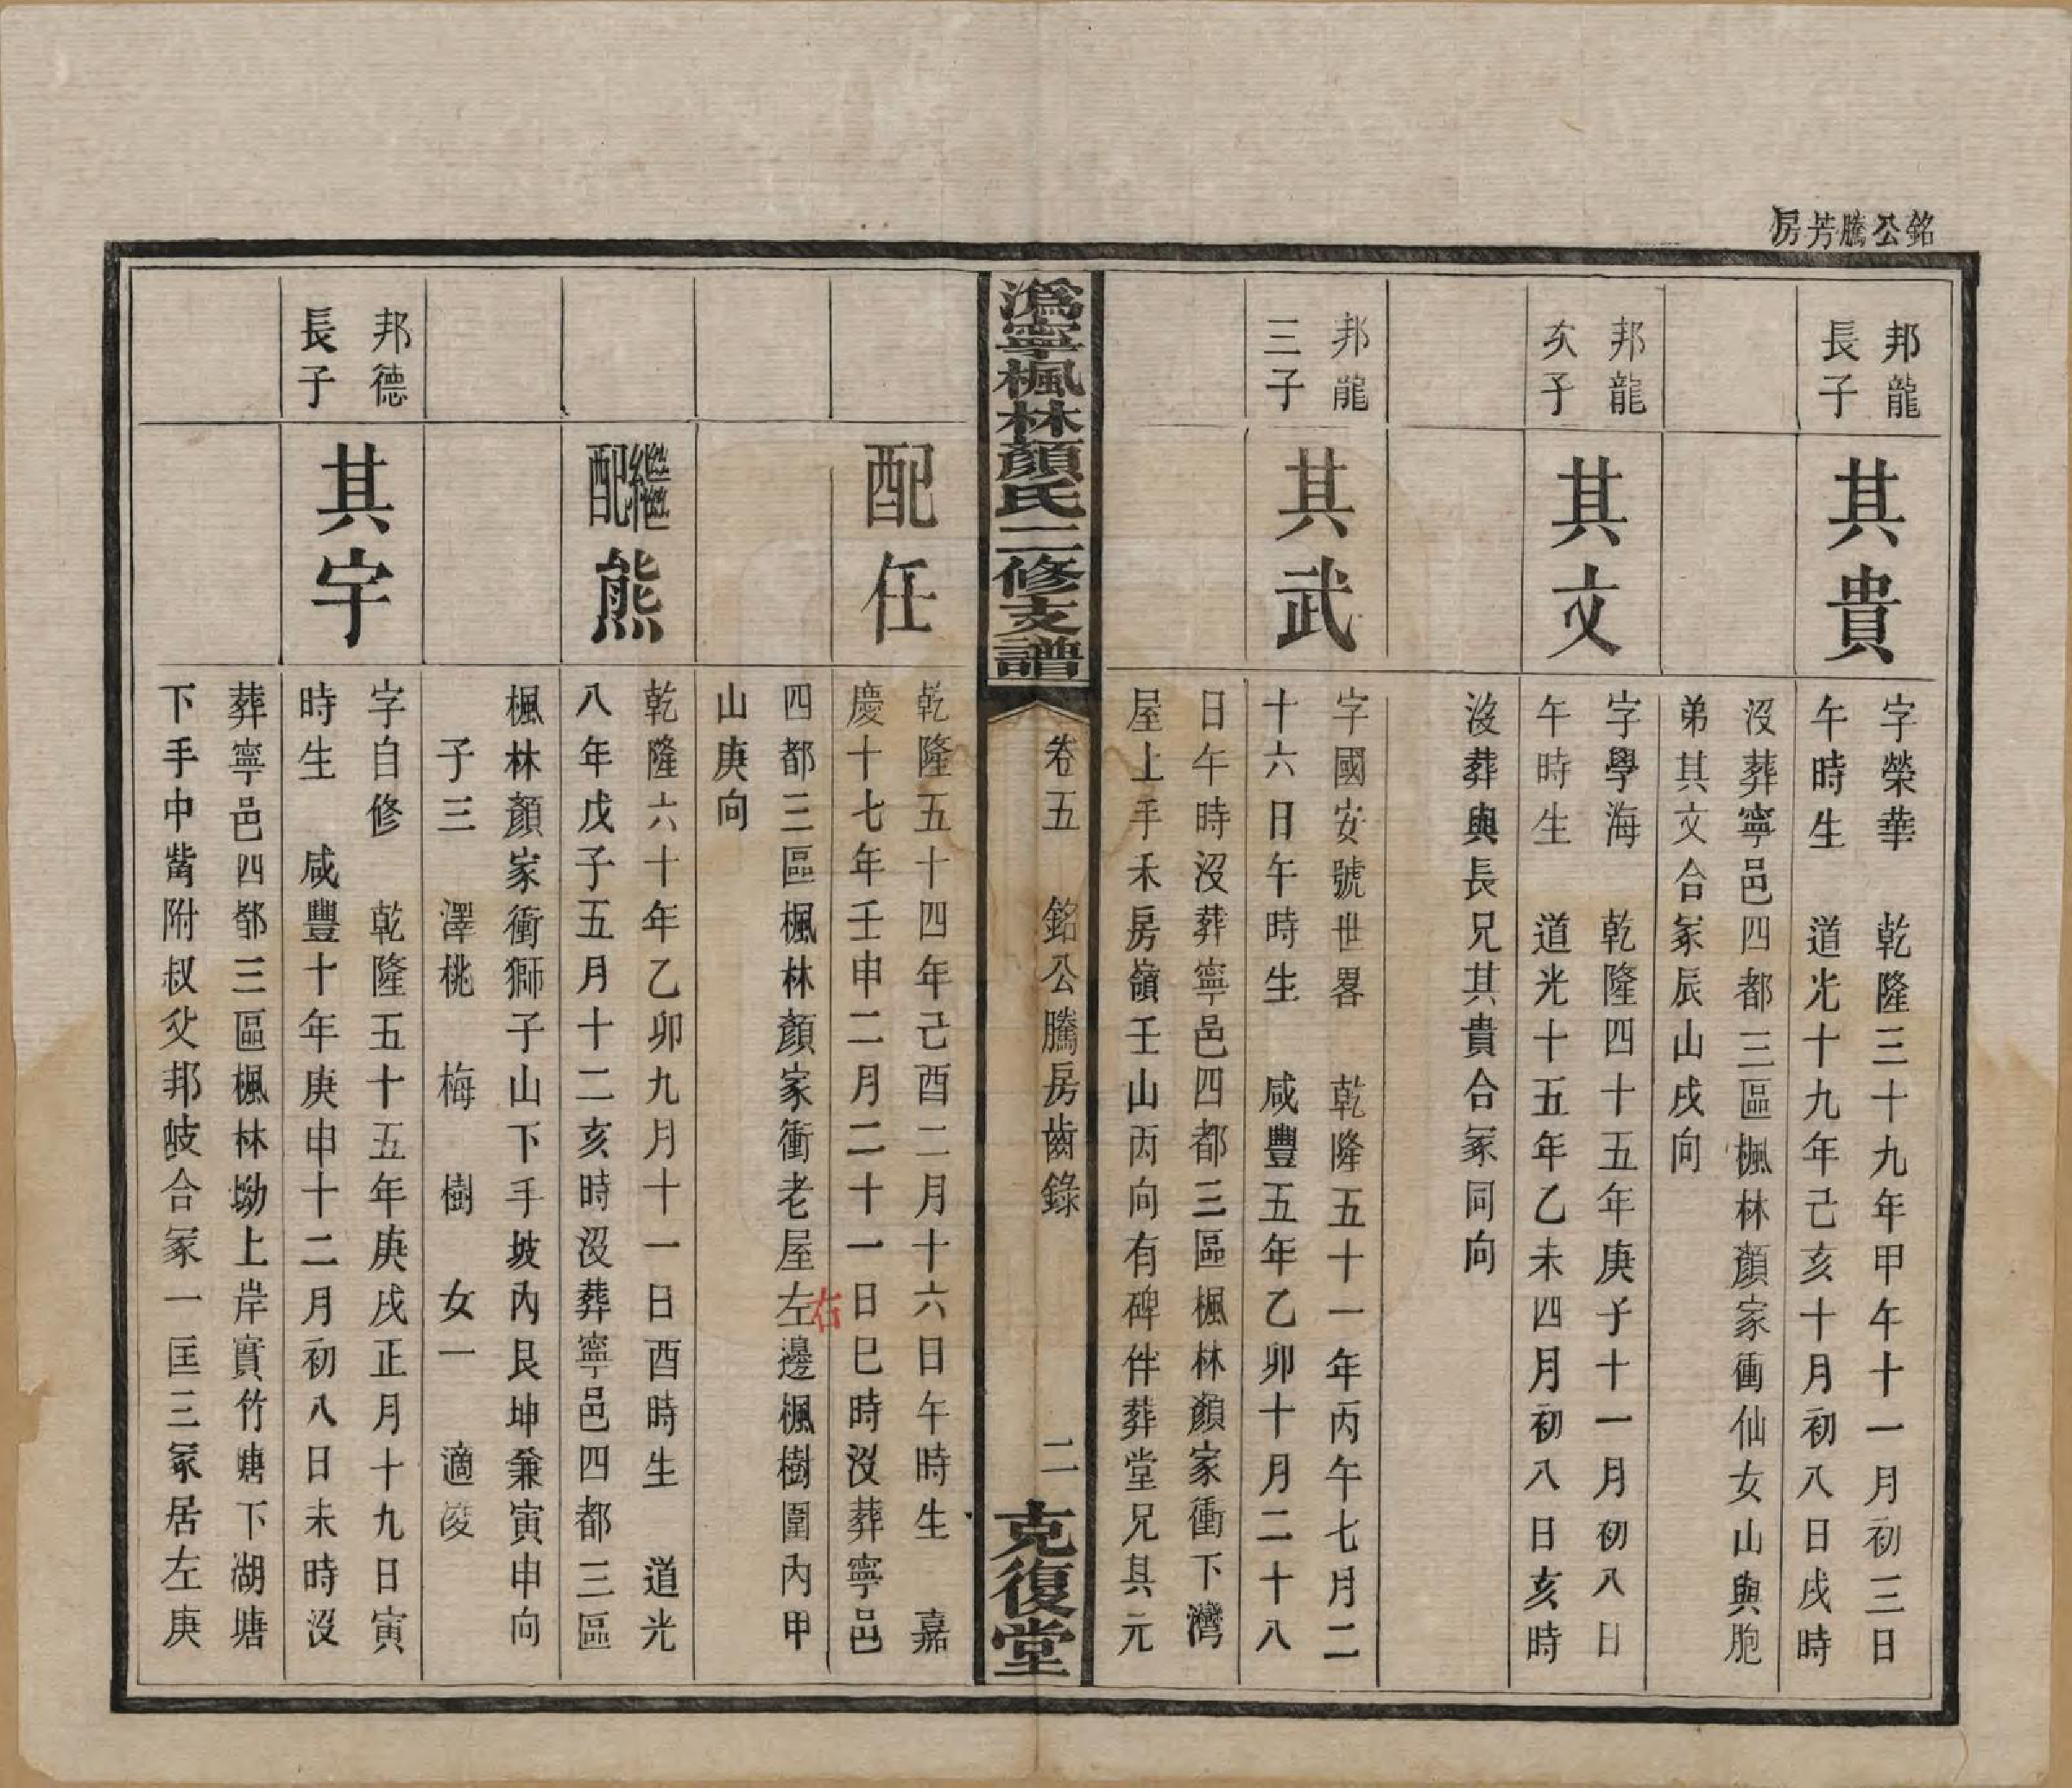 銘公騰芳房
邦龍
長子
其貴
字榮華　乾隆三十九年甲午十一月初三日
午時生　道光十九年己亥十月初八日戌時
沒葬寧邑四都三區楓林顏家衝仙女山與胞
弟其文合冢辰山戌向
邦龍
次子
其文
字學海　乾隆四十五年庚子十一月初八日
午時生　道光十五年乙未四月初八日亥時
沒葬與長兄其貴合冢同向
邦龍
三子
其武
字國安號世畧　乾隆五十一年丙午七月二
十六日午時生　咸豐五年乙卯十月二十八
日午時沒葬寧邑四都三區楓林顏家衝下灣
屋上手禾房嶺壬山丙向有碑伴葬堂兄其元
溈寧楓林顏氏二修支譜
卷五　銘公騰房齒錄
二
克復堂
配任
乾隆五十四年己酉二月十六日午時生　嘉
慶十七年壬申二月二十一日巳時沒葬寧邑
四都三區楓林顏家衝老屋左邊楓樹圍內甲
右
山庚向
繼配熊
乾隆六十年乙卯九月十一日酉時生　道光
八年戊子五月十二亥時沒葬寧邑四都三區
楓林顏家衝獅子山下手坡內艮坤兼寅申向
子三　澤桃　梅　樹　女一　適浚
邦德
長子
其宇
字自修　乾隆五十五年庚戌正月十九日寅
時生　咸豐十年庚申十二月初八日未時沒
葬寧邑四都三區楓林坳上岸實竹塘下湖塘
下手中嘴附叔父邦岐合冢一匡三冢居左庚